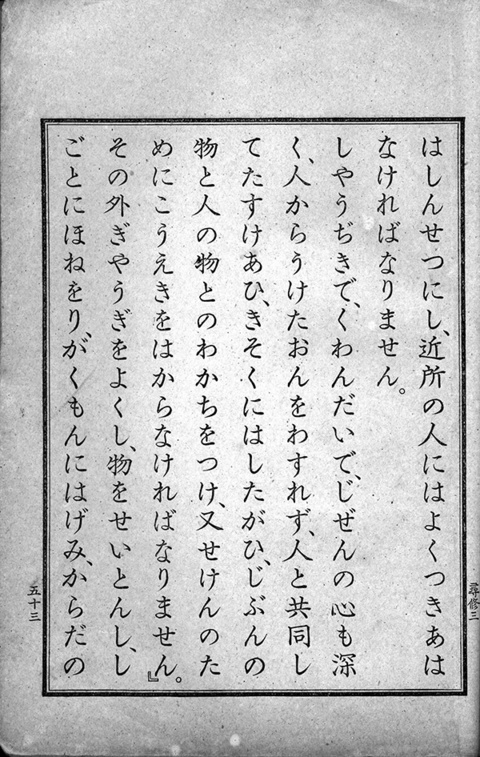 はしんせつにし、近所の人にはよくつきあは
なければなりません。
しやうぢきで、くわんだいで、じぜんの心も深
く、人からうけたおんをわすれず、人と共同し
てたすけあひ、きそくにはしたがひ、じぶんの
物と人の物とのわかちをつけ、又せけんのた
めにこうえきをはからなければなりません。』
その外ぎやうぎをよくし、物をせいとんし、し
ごとにほねをり、がくもんにはげみ、からだの
尋修三
五十三